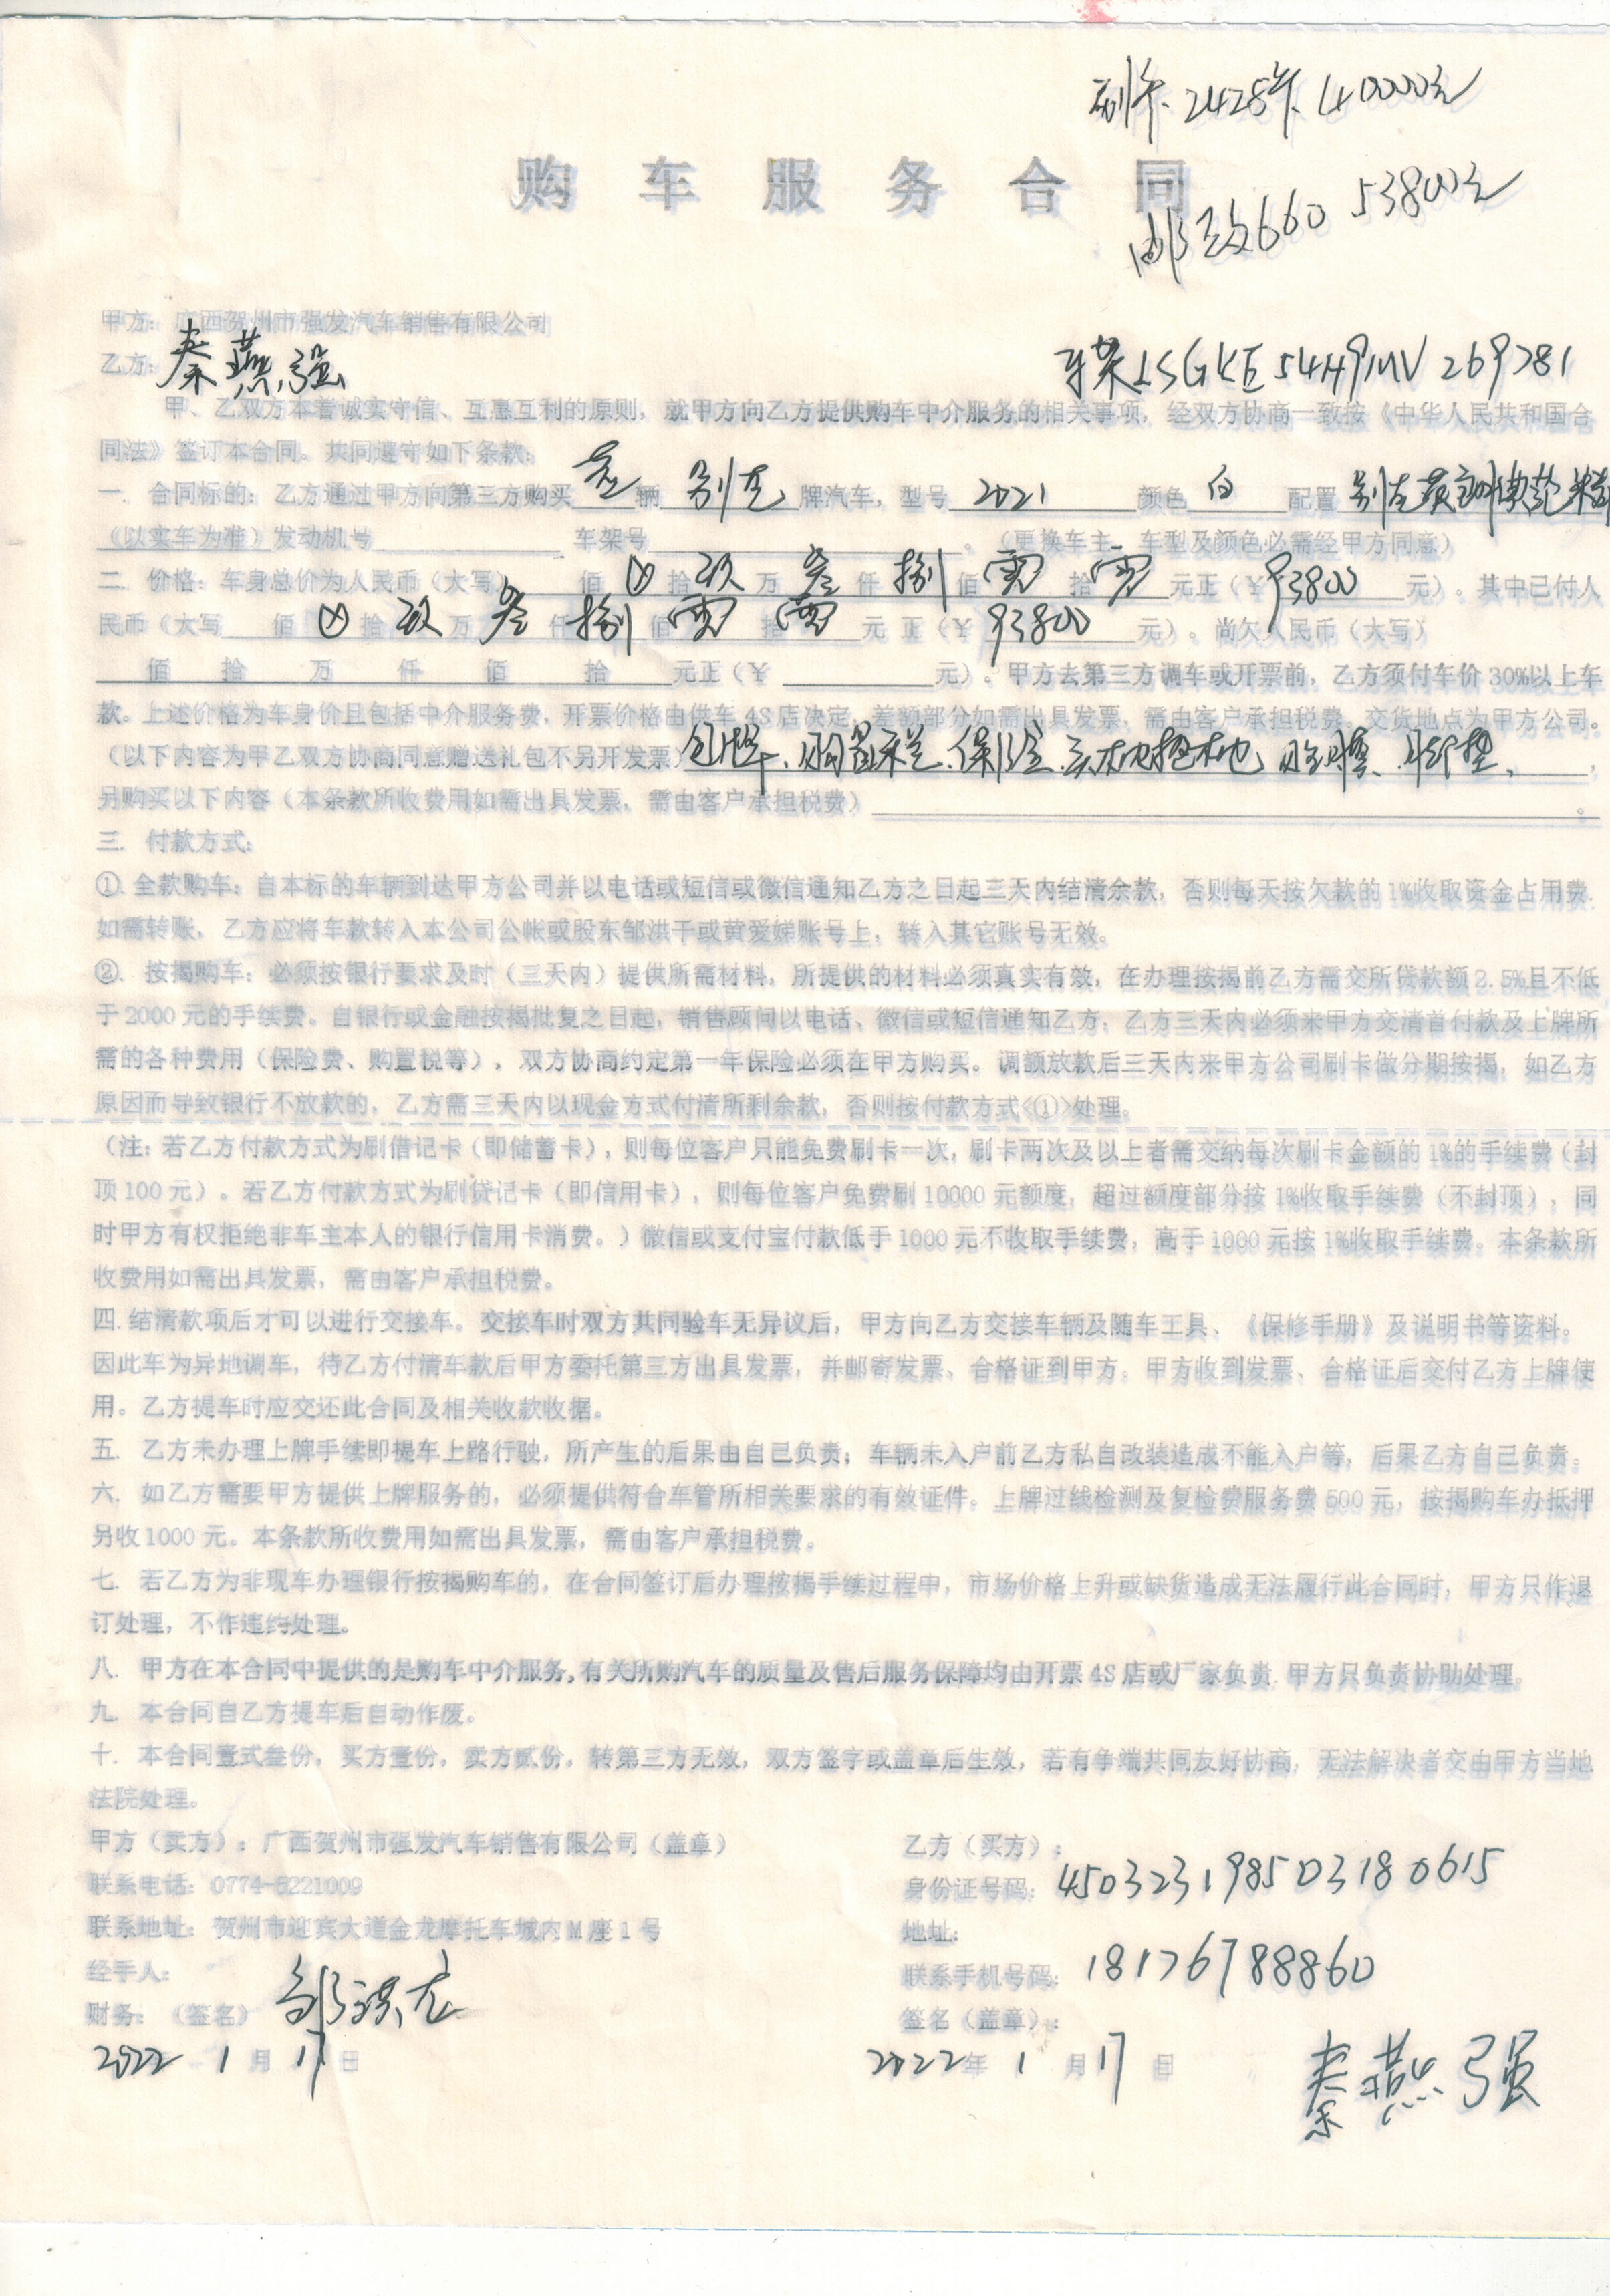 刷卡 2428卡 40000元
购车服务合同
邮政660 53800元
甲方：广西贺州市强发汽车销售有限公司
乙方：秦燕强
车架LSGKE54H9MV269781
甲、乙双方本着诚实守信、互惠互利的原则，就甲方向乙方提供购车中介服务的相关事项，经双方协商一致按《中华人民共和国合
同法》签订本合同。共同遵守如下条款：
一. 合同标的：乙方通过甲方向第三方购买 壹 辆 别克 牌汽车，型号 2021 颜色 白 配置 别克英朗
（以实车为准）发动机号 车架号 。（更换车主、车型及颜色必需经甲方同意）
二. 价格：车身总价为人民币（大写） 佰 拾 玖 万 叁 仟 捌 佰 零 拾 零 元正（￥93800 元）。其中已付人
民币（大写 佰 拾 玖 万 叁 仟 捌 佰 零 拾 零 元 正（￥ 93800 元）。尚欠人民币（大写）
佰 拾 万 仟 佰 拾 元正（￥ 元）。甲方去第三方调车或开票前，乙方须付车价 30%以上车
款。上述价格为车身价且包括中介服务费，开票价格由供车 4S 店决定，差额部分如需出具发票，需由客户承担税费。交货地点为甲方公司。
（以下内容为甲乙双方协商同意赠送礼包不另开发票）包牌、购置税、保险、脚垫、
另购买以下内容（本条款所收费用如需出具发票，需由客户承担税费） 。
三. 付款方式：
①. 全款购车：自本标的车辆到达甲方公司并以电话或短信或微信通知乙方之日起三天内结清余款，否则每天按欠款的 1%收取资金占用费.
如需转账，乙方应将车款转入本公司公帐或股东邹洪干或黄爱娣账号上，转入其它账号无效。
②. 按揭购车：必须按银行要求及时（三天内）提供所需材料，所提供的材料必须真实有效，在办理按揭前乙方需交所贷款额 2.5%且不低
于 2000 元的手续费。自银行或金融按揭批复之日起，销售顾问以电话、微信或短信通知乙方，乙方三天内必须来甲方交清首付款及上牌所
需的各种费用（保险费、购置税等），双方协商约定第一年保险必须在甲方购买。调额放款后三天内来甲方公司刷卡做分期按揭，如乙方
原因而导致银行不放款的，乙方需三天内以现金方式付清所剩余款，否则按付款方式<①>处理。
（注：若乙方付款方式为刷借记卡（即储蓄卡），则每位客户只能免费刷卡一次，刷卡两次及以上者需交纳每次刷卡金额的 1%的手续费（封
顶 100 元）。若乙方付款方式为刷贷记卡（即信用卡），则每位客户免费刷 10000 元额度，超过额度部分按 1%收取手续费（不封顶），同
时甲方有权拒绝非车主本人的银行信用卡消费。）微信或支付宝付款低于 1000 元不收取手续费，高于 1000 元按 1%收取手续费。本条款所
收费用如需出具发票，需由客户承担税费。
四. 结清款项后才可以进行交接车。交接车时双方共同验车无异议后，甲方向乙方交接车辆及随车工具、《保修手册》及说明书等资料。
因此车为异地调车，待乙方付清车款后甲方委托第三方出具发票，并邮寄发票、合格证到甲方。甲方收到发票、合格证后交付乙方上牌使
用。乙方提车时应交还此合同及相关收款收据。
五. 乙方未办理上牌手续即提车上路行驶，所产生的后果由自己负责；车辆未入户前乙方私自改装造成不能入户等，后果乙方自己负责。
六. 如乙方需要甲方提供上牌服务的，必须提供符合车管所相关要求的有效证件。上牌过线检测及复检费服务费 500 元，按揭购车办抵押
另收 1000 元。本条款所收费用如需出具发票，需由客户承担税费。
七. 若乙方为非现车办理银行按揭购车的，在合同签订后办理按揭手续过程中，市场价格上升或缺货造成无法履行此合同时，甲方只作退
订处理，不作违约处理。
八. 甲方在本合同中提供的是购车中介服务，有关所购汽车的质量及售后服务保障均由开票 4S 店或厂家负责. 甲方只负责协助处理。
九. 本合同自乙方提车后自动作废。
十. 本合同壹式叁份，买方壹份，卖方贰份，转第三方无效，双方签字或盖章后生效，若有争端共同友好协商，无法解决者交由甲方当地
法院处理。
甲方（卖方）：广西贺州市强发汽车销售有限公司（盖章） 乙方（买方）：
联系电话：0774-5221009 身份证号码：450323198503180615
联系地址：贺州市迎宾大道金龙摩托车城内 M 座 1 号 地址：
经手人： 联系手机号码：18176788860
财务：（签名） 签名（盖章）：
2022 1 月 17 日 2022 年 1 月 17 日 秦燕强